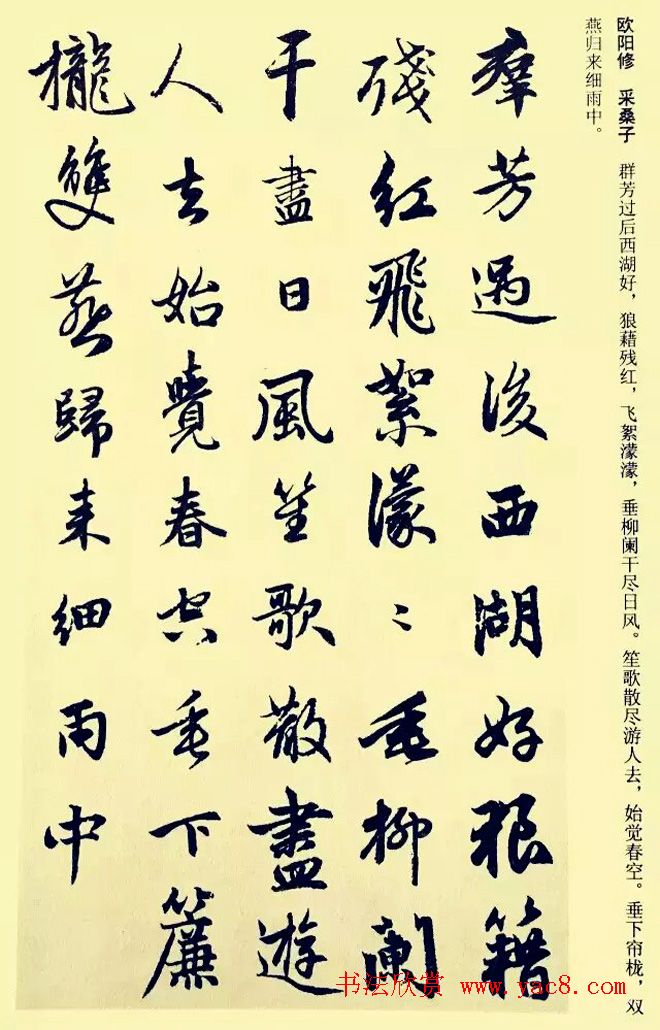 欧阳修　采桑子　群芳过后西湖好，狼藉残红，飞絮濛濛，垂柳阑干尽日风。笙歌散尽游人去，始觉春空。垂下帘栊，双
燕归来细雨中。
羣芳過後西湖好狼籍
殘紅飛絮濛〻垂柳闌
干盡日風笙歌散盡遊
人去始覺春空垂下簾
櫳雙燕歸来細雨中
书法欣赏 www.yac8.com